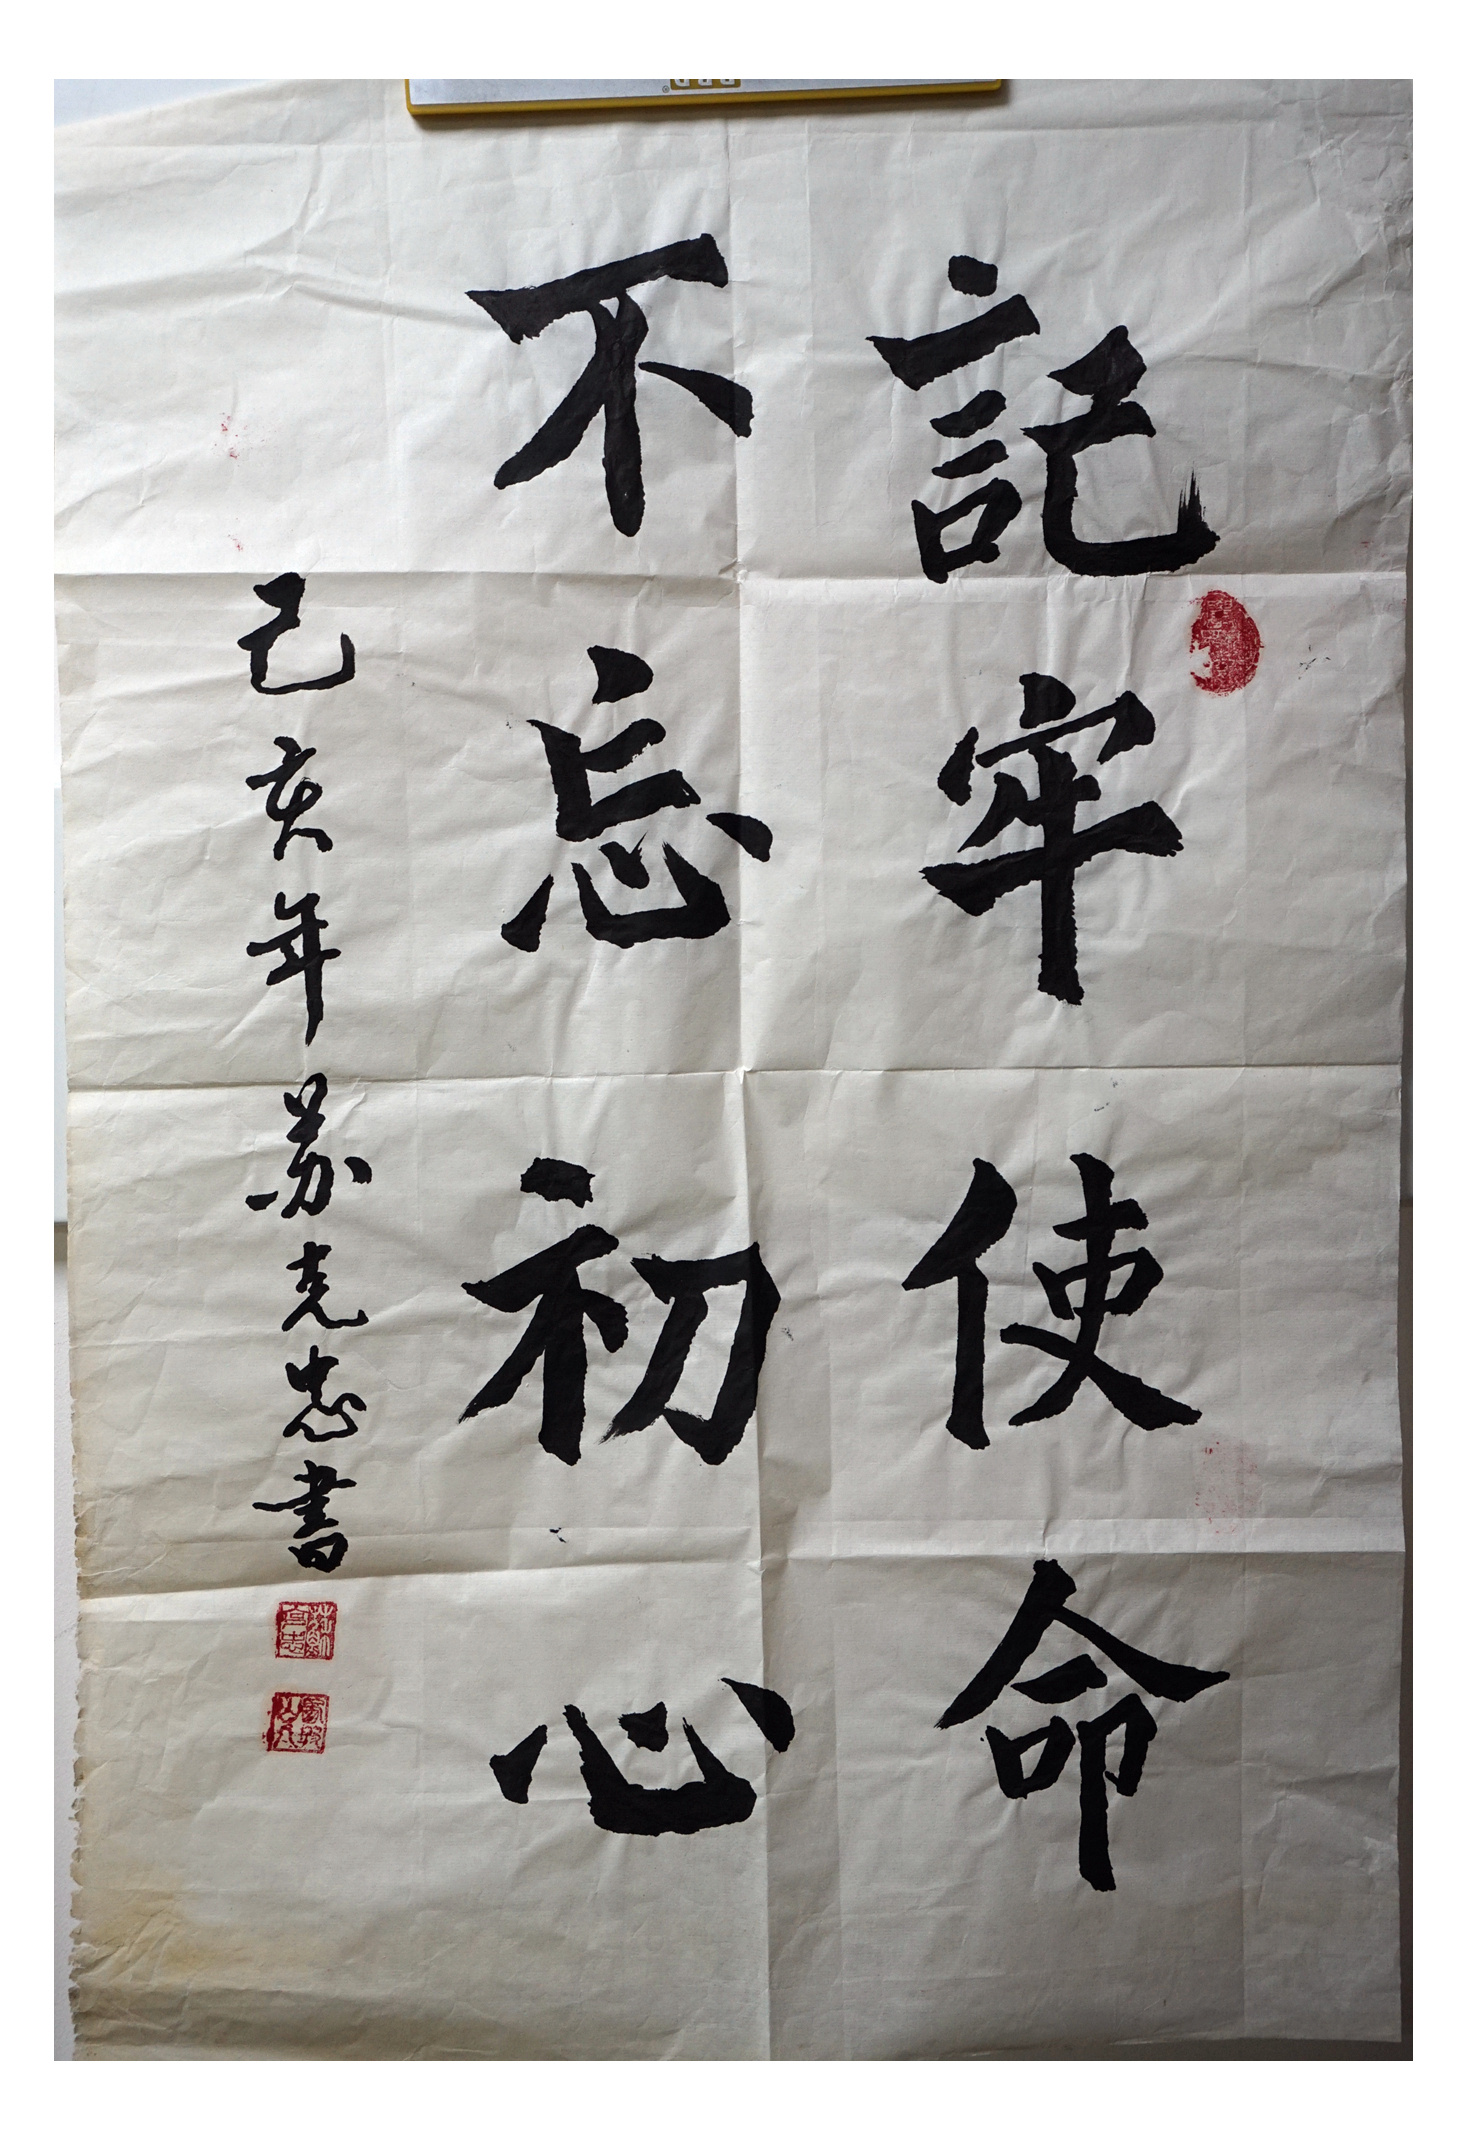 記牢使命
不忘初心
己亥年苏克忠書